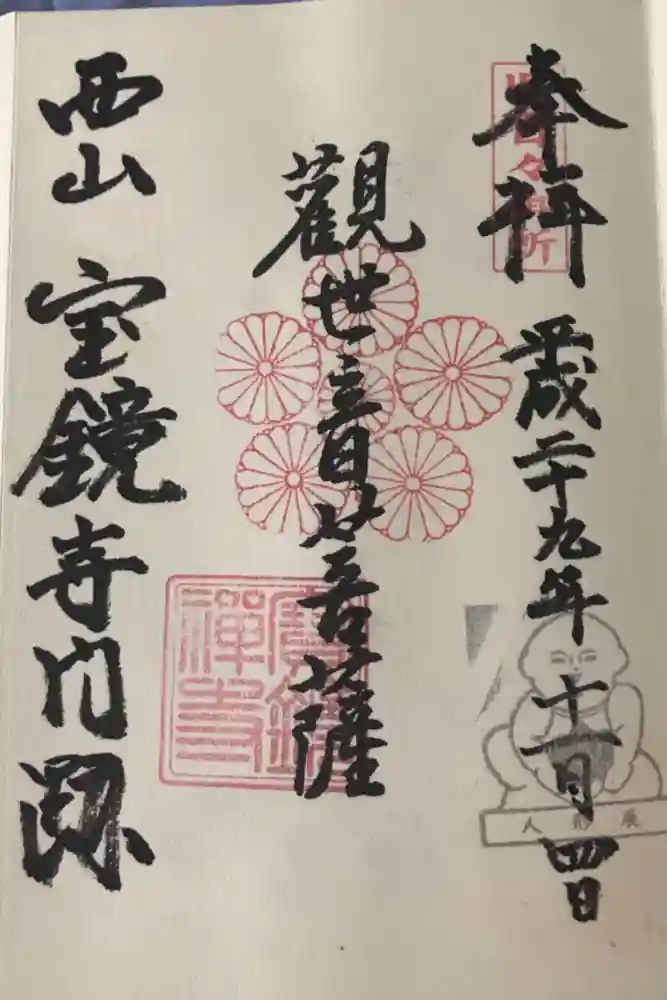 奉拝 平成二十九年 十一月四日
觀世音菩薩
西山 宝鏡寺門跡
人形展
寶鏡禪寺